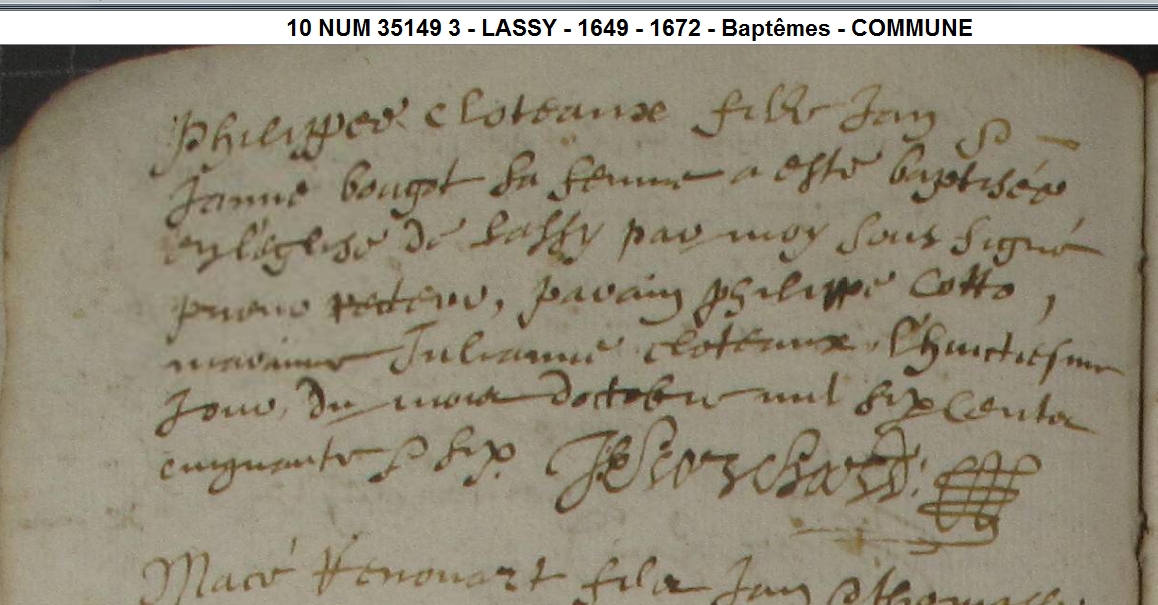 10 NUM 35149 3 - LASSY - 1649 - 1672 - Baptêmes - COMMUNE
Philippes Cloteaux fille Jan &
Janne bougot sa femme a esté baptisée
en l'église de Lassy par moy sous signé
recteur, parain philippe Cotto,
maraine Julianne cloteaux, l'huictiesme
jour du mois d'octobre mil six cents
cinquante & six.
Macé Renouart fils Jan &